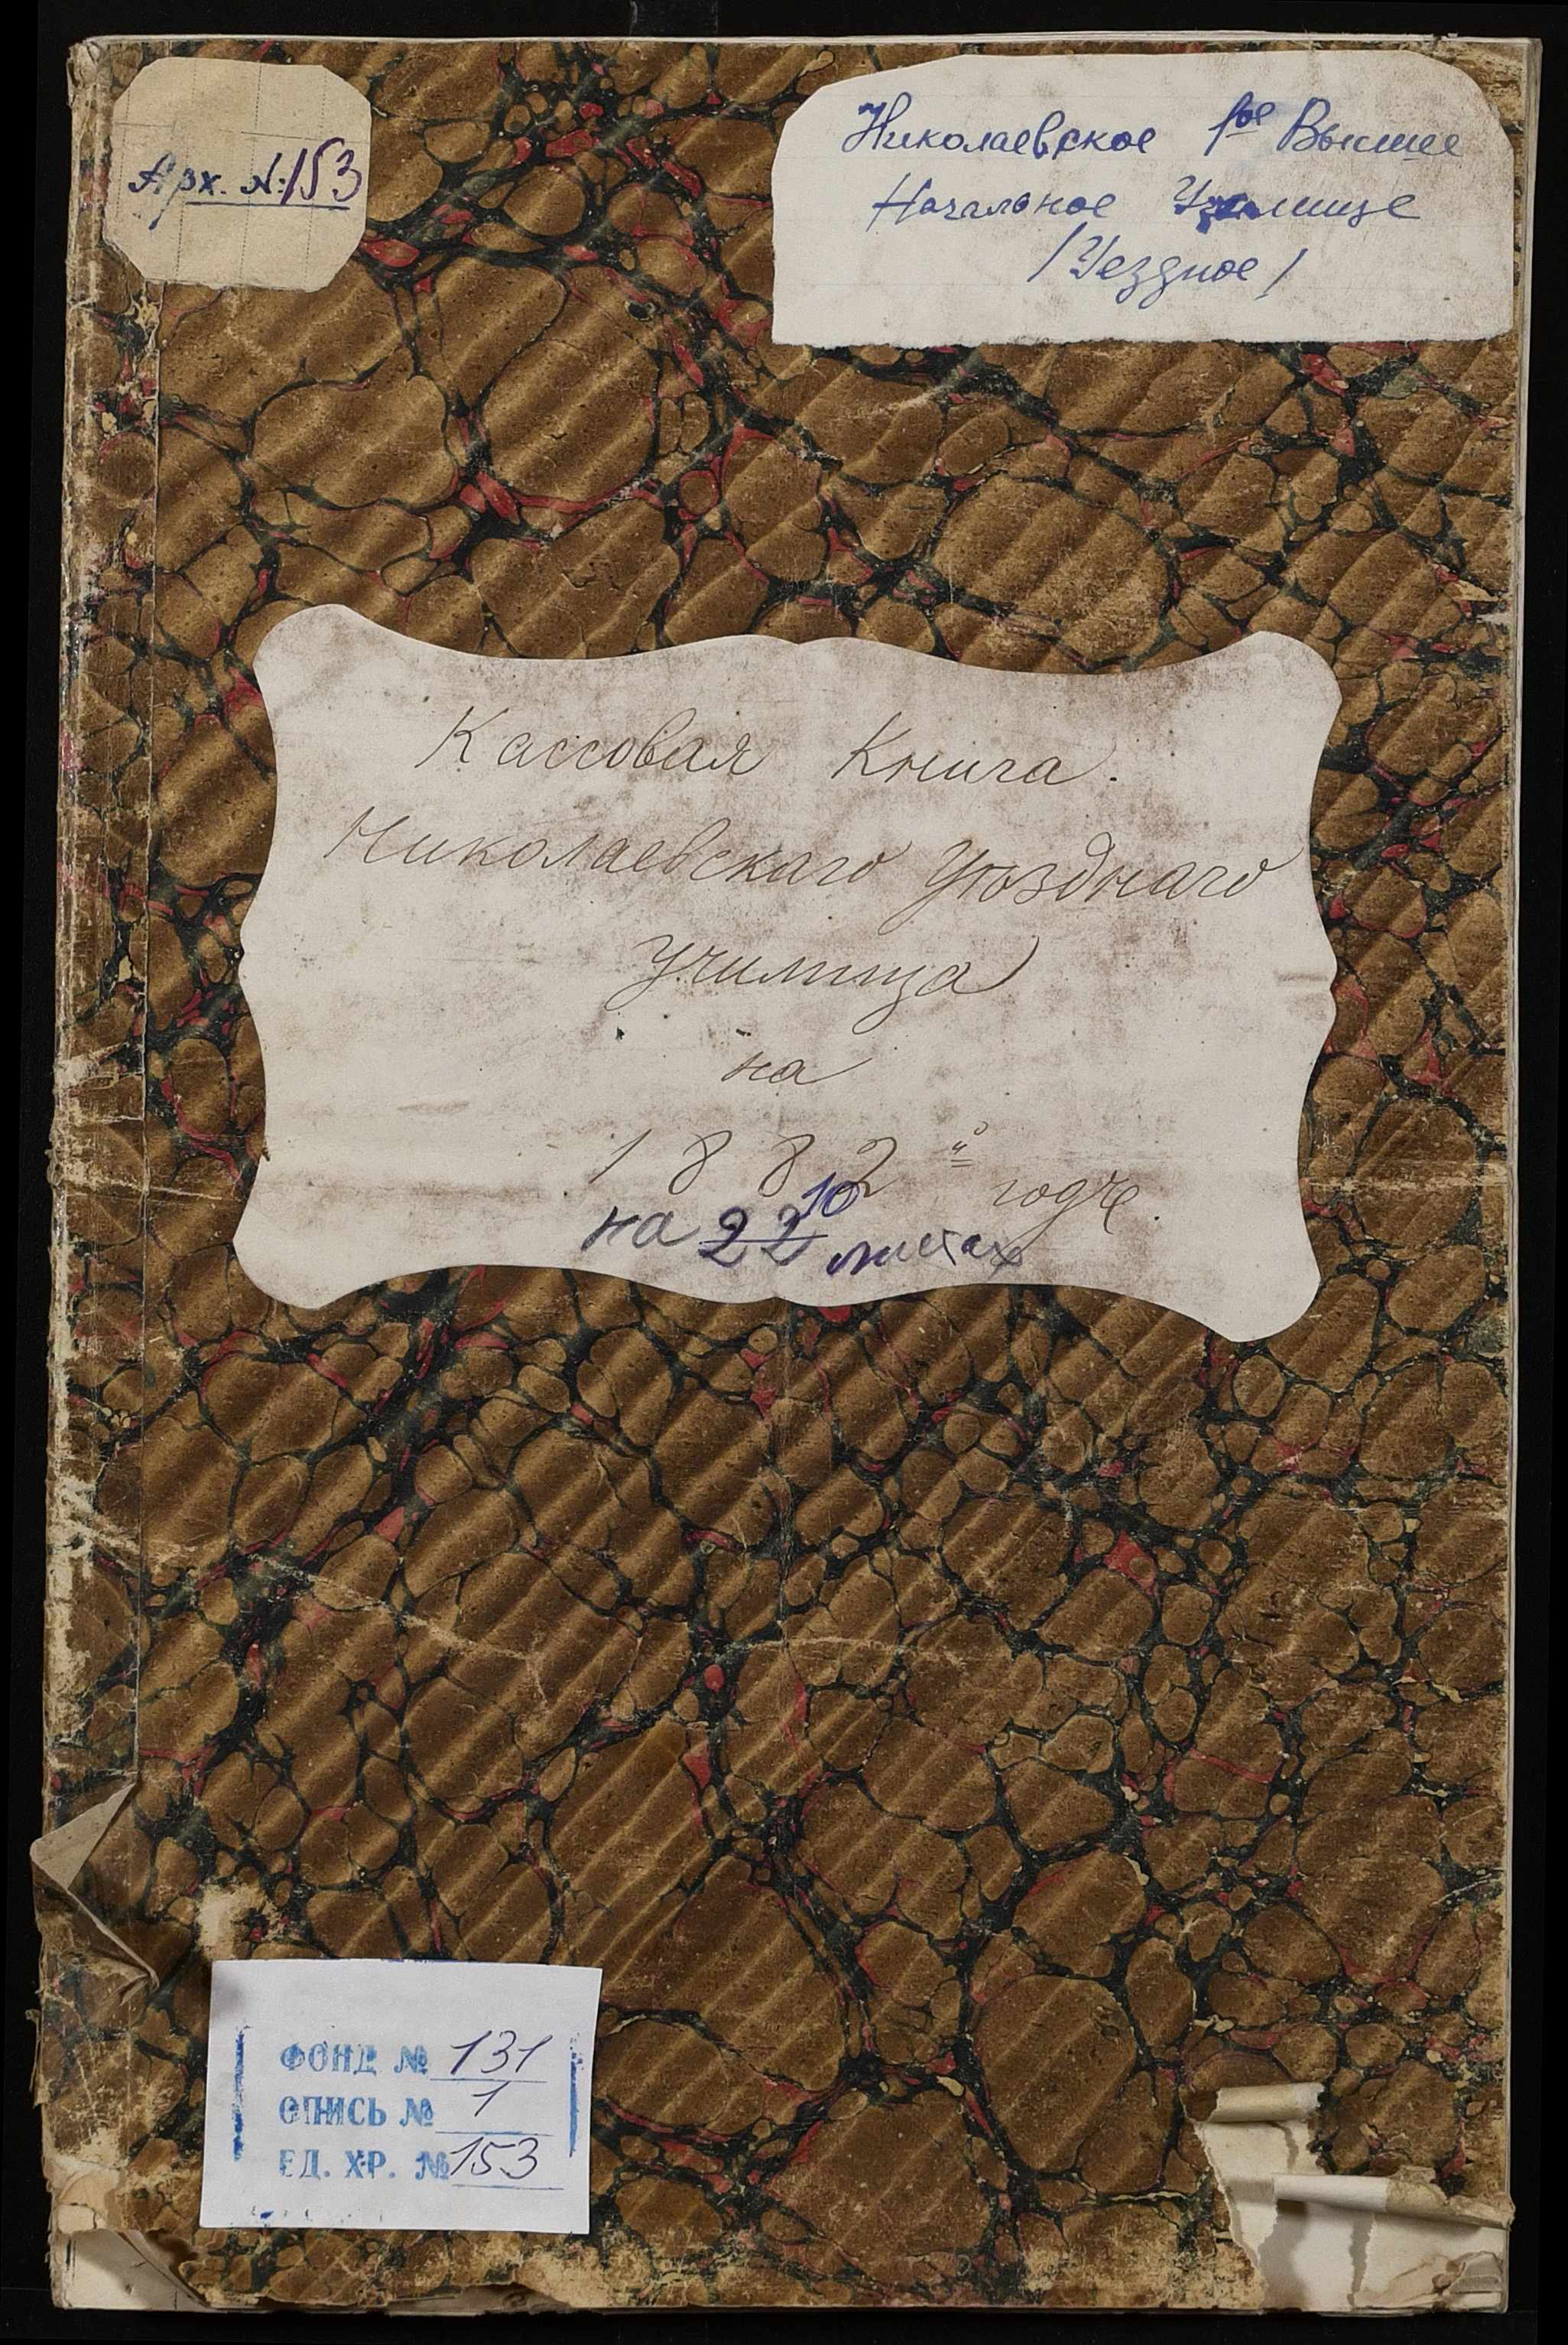 Арх. №: 153
Николаевское 1ое Высшее
Начальное Училище
/Уездное/
Кассовая Книга.
Николаевскаго Уѣзднаго
Училища
на
1882й годъ.
10
на 22 листах
ФОНД № 131
ОПИСЬ № 1
ЕД. ХР. № 153